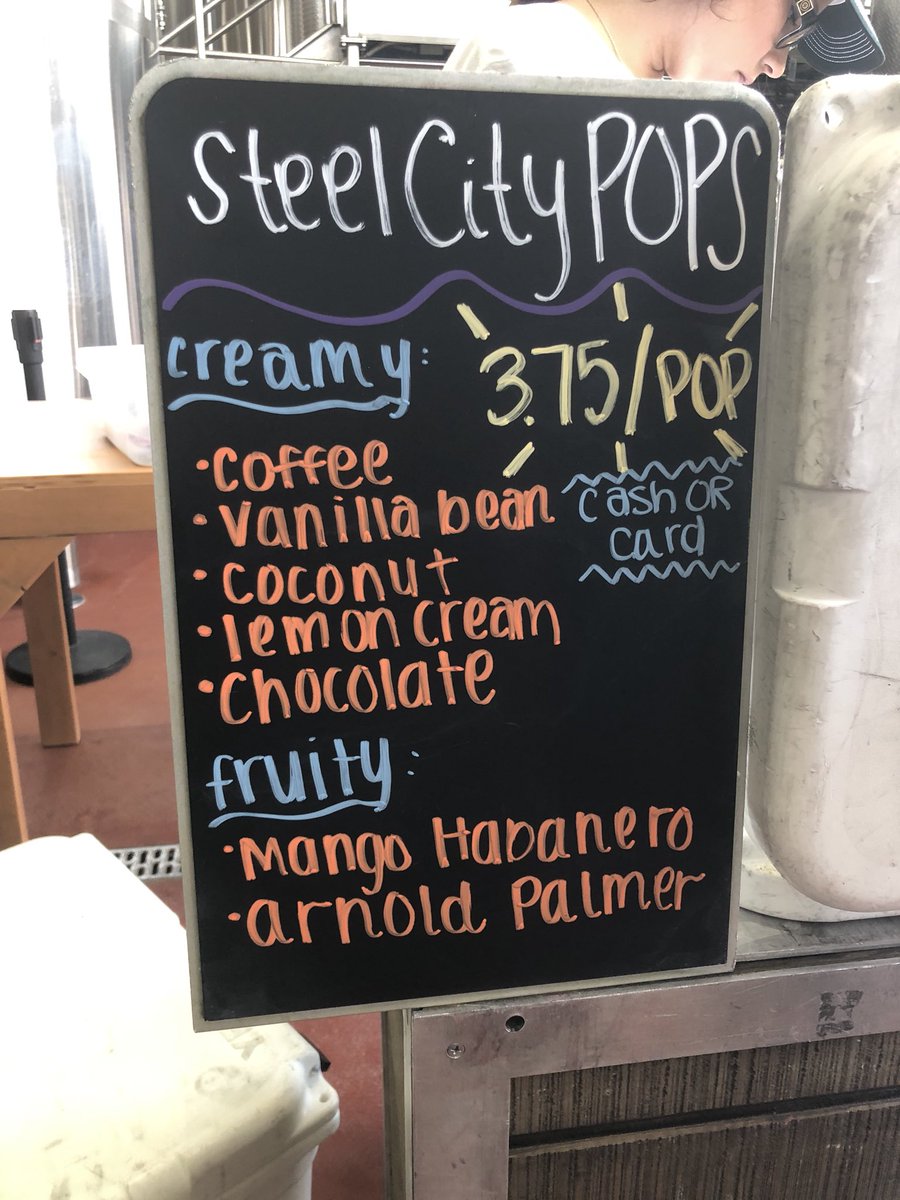 Steel City POPS
creamy:
3.75/POP
cash OR
card
• coffee
• vanilla bean
• coconut
• lemon cream
• chocolate
fruity:
• Mango Habanero
• arnold Palmer